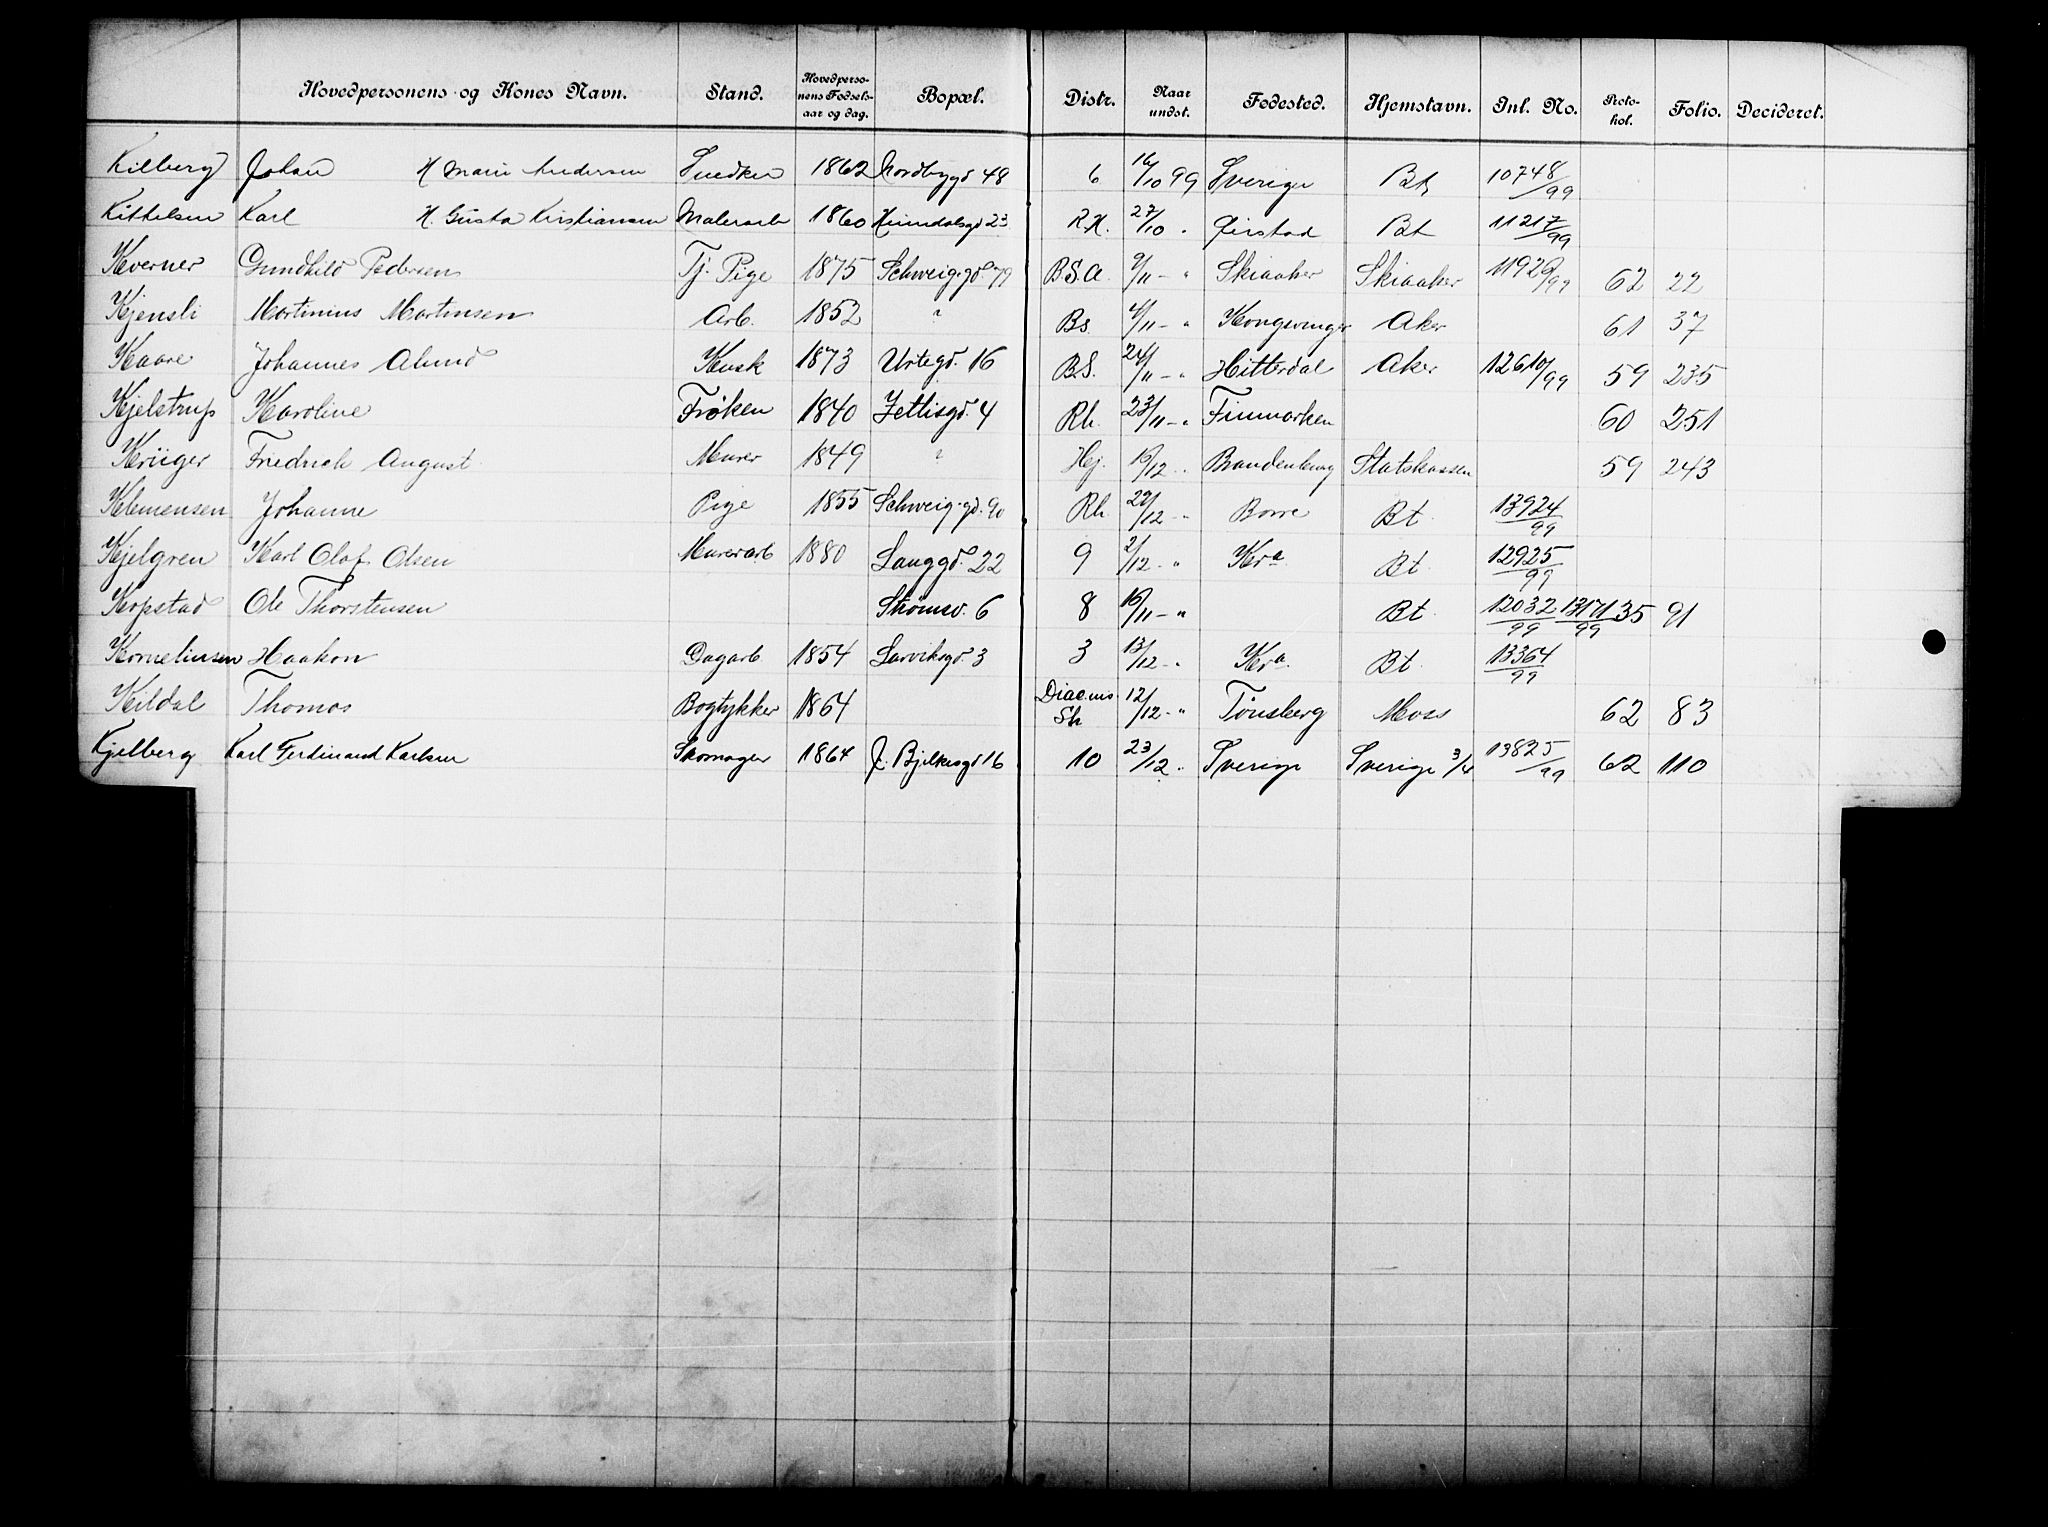 Hovedpersonens og Kones Navn. Stand. Hovedperso-nens Fødsels-aar og dag. Bopæl. Distr. Naar undst. Fødested. Hjemstavn. Inl. No. Proto-kol. Folio. Decideret.
Kilberg Johan H Marie Andersen Snedker 1862 Nordbygd 48 6 16/10 99 Sverige Bt 10748/99
Kittelsen Karl H. Gusta Kristiansen Malerarb 1860 Heimdalsgd 23 R.H. 27/10 " Øirstad Bt 11217/99
Kverner Gundhild Pedersen Tj. Pige 1875 Schweig.gd. 79 B.S.A. 9/11 - " Skiaaker Skiaaker 11920/99 62 22
Kjensli Martinius Martinsen Arb. 1852 ? Bs. 4/11 - " Kongsvinger Aker 61 37
Kaare Johannes Amund Kusk 1873 Urtegd. 16 B.S. 24/11 - " Hitterdal Aker 12610/99 59 235
Kjelstrup Karoline Frøken 1840 Zetlisgd. 4 Rh. 23/11 - " Finmarken 60 251
Krüger Friedrich August Murer 1849 ? Hj. 16/12 - Brandenburg Statskassen 59 243
Klemensen Johanne Pige 1855 Schweig.gd. 90 Rh. 29/12 - " Borre Bt. 13924/99
Kjelgren Karl Olaf Olsen Murerarb 1880 Langgd. 22 9 2/12 - " Kra Bt. 12925/99
Kopstad Ole Thorstensen Strømsv. 6 8 16/11 - " Bt. 12032/99 13171/99 35 91
Kornelinsen Haakon Dagarb 1854 Larviksgd. 3 3 13/12 - " Kra. Bt. 13364/99
Kildal Thomas Bogtykker 1864 Diaconis. Sh 12/12 - " Tønsberg Moss 62 83
Kjelberg Karl Ferdinand Karlsen Skomager 1864 J. Bjelkesgd 16 10 23/12 " Sverige Sverige 3/4 13825/99 62 110